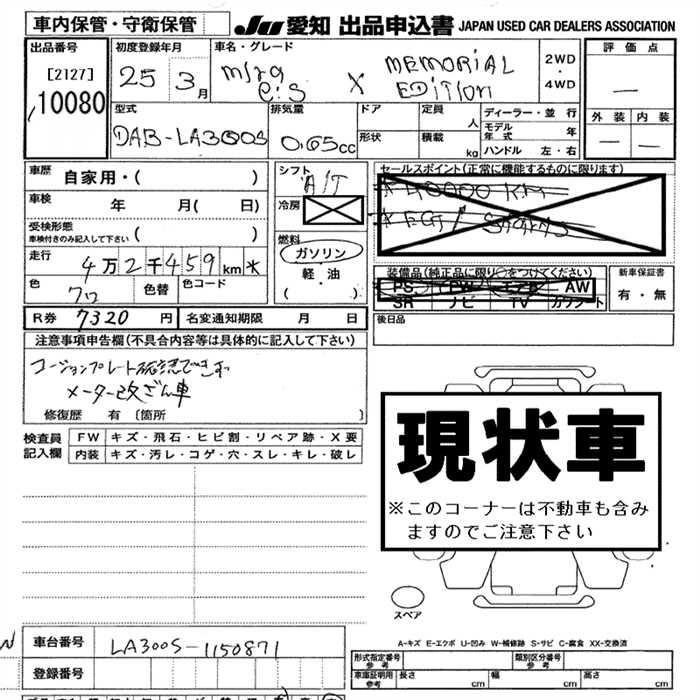 車内保管・守衛保管
JU 愛知 出品申込書 JAPAN USED CAR DEALERS ASSOCIATION
出品番号
[2127]
10080
初度登録年月
25 3月
車名・グレード
e:S X MEMORIAL EDITION
2WD
・
4WD
評価点
—
外装 内装
— —
型式
DAB-LA300S
排気量
0.65cc
ドア
形状
定員 人
積載 kg
ディーラー・並行
モデル年式 年
ハンドル 左・右
車歴 自家用・( )
車検 年 月( 日)
受検形態
車検付きのみ記入して下さい ( )
走行 4万2千459km*
色
色替
色コード
R券 7320円
名変通知期限 月 日
シフト
A/T
冷房
燃料
ガソリン
・
軽・油
( )
セールスポイント(正常に機能するものに限ります)
装備品(純正品に限り○をつけてください)
PS PW エアB AW
SR ナビ TV カワシート
新車保証書
有・無
後日品
注意事項申告欄(不具合内容等は具体的に記入して下さい)
コーションプレート確認できず
メーター改ざん車
修復歴 有〔箇所
検査員記入欄
FW キズ・飛石・ヒビ割・リペア跡・X要
内装 キズ・汚レ・コゲ・穴・スレ・キレ・破レ
現状車
※このコーナーは不動車も含みますのでご注意下さい
スペア
A-キズ E-エクボ U-凹み W-補修跡 S-サビ C-腐食 XX-交換済
車台番号 LA300S-1150871
登録番号
形式指定番号
参考
類別区分番号
参考
車庫証明用
参考
長さ cm 幅 cm 高さ cm